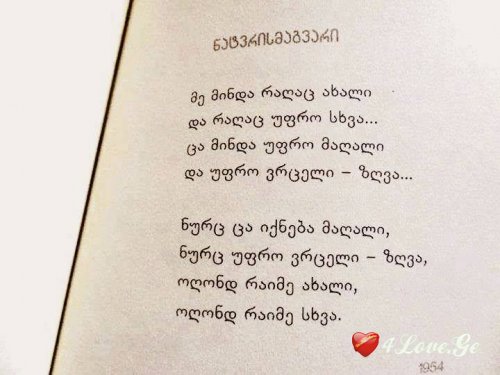 ნატვრისმაგვარი
მე მინდა რაღაც ახალი
და რაღაც უფრო სხვა...
ცა მინდა უფრო მაღალი
და უფრო ვრცელი – ზღვა...
ნურც ცა იქნება მაღალი,
ნურც უფრო ვრცელი – ზღვა,
ოღონდ რაიმე ახალი,
ოღონდ რაიმე სხვა.
4Love.Ge
1954